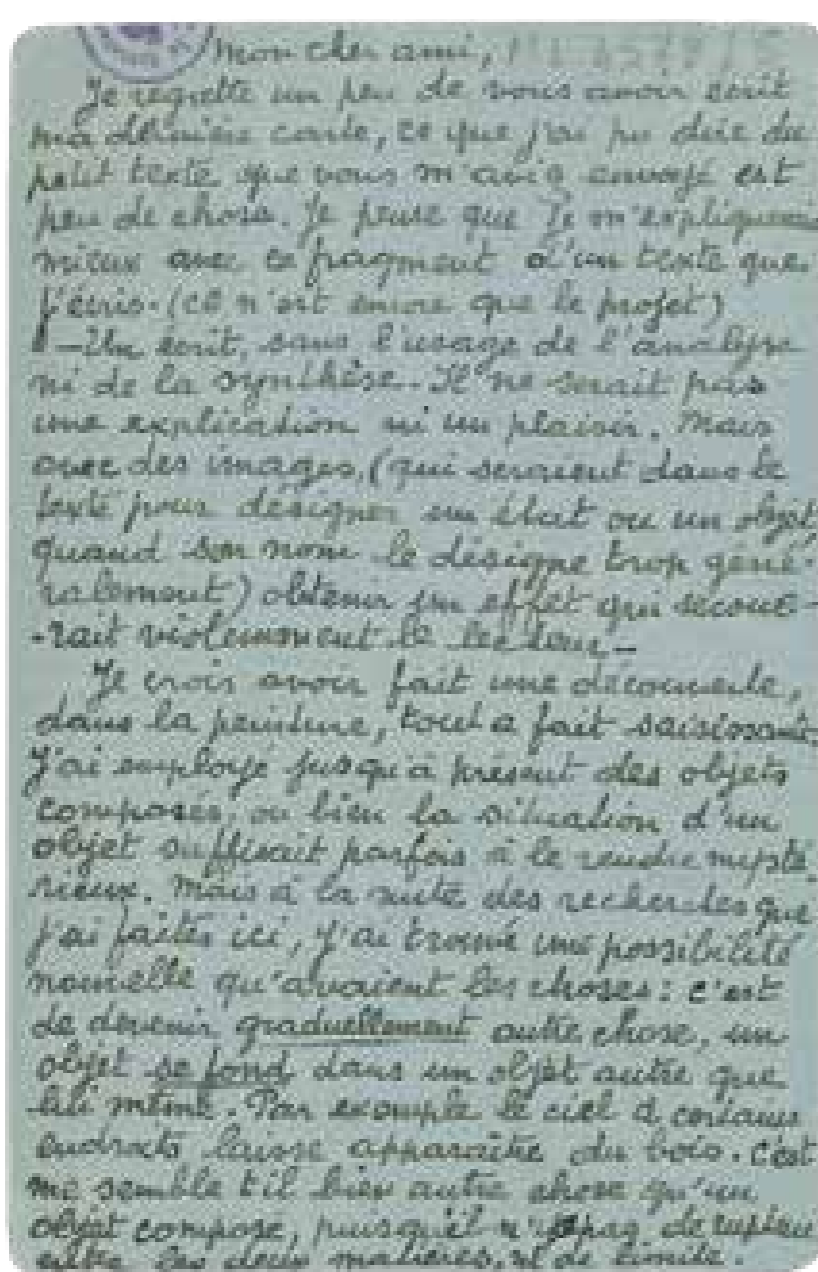 Mon cher ami,
Je regrette un peu de vous avoir écrit
ma dernière carte, ce que j'ai pu dire du
petit texte que vous m'aviez envoyé est
peu de chose. Je pense que je m'expliquerai
mieux avec ce fragment d'un texte que
j'écris. (ce n'est encore que le projet)
—Un écrit, sans l'usage de l'analyse
ni de la synthèse. Il ne serait pas
une explication ni un plaisir. Mais
avec des images, (qui seraient dans le
texte pour désigner un état ou un objet,
quand son nom le désigne trop géné-
ralement) obtenir un effet qui secoue-
-rait violemment le lecteur—
Je crois avoir fait une découverte,
dans la peinture, tout a fait saisissante.
J'ai employé jusqu'à présent des objets
composés, ou bien la situation d'un
objet suffisait parfois à le rendre mysté-
rieux. Mais à la suite des recherches que
j'ai faites ici, j'ai trouvé une possibilité
nouvelle qu'avaient les choses: c'est
de devenir graduellement autre chose, un
objet se fond dans un objet autre que
lui même. Par exemple le ciel à certains
endroits laisse apparaître du bois. C'est
me semble t'il bien autre chose qu'un
objet composé, puisqu'il n'y a pas de rupture
entre les deux matières, ni de limite.